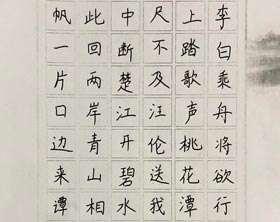 李白乘舟将欲行
上踏歌声桃花潭
尺不及汪伦送我
中断楚江开碧水
此回两岸青山相
帆一片日边来谭